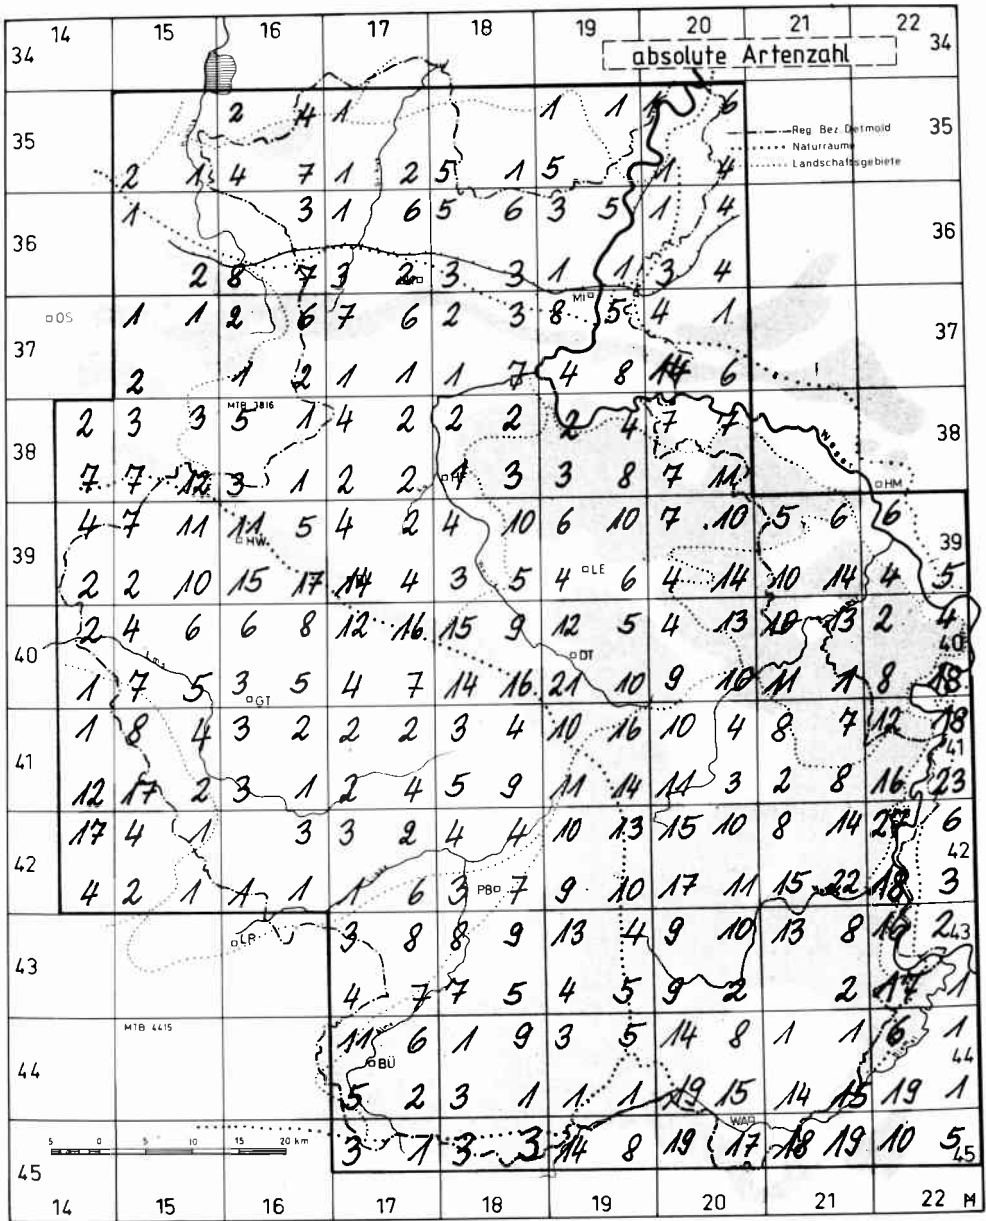 14 15 16 17 18 19 20 21 22
34 absolute Artenzahl 34
2 4 1 1 1 1 6
Reg. Bez. Detmold
35 Naturräume 35
Landschaftsgebiete
2 1 4 7 1 2 5 1 5 1 4
1 3 1 6 5 6 3 5 1 4
36 36
2 8 7 3 2 3 3 1 1 3 4
MI
OS 1 1 2 6 7 6 2 3 8 5 4 1
37 37
2 1 2 1 1 1 7 4 8 14 6
MTB 3816
2 3 3 5 1 4 2 2 2 2 4 7 7
38 Weser 38
7 7 12 3 1 2 2 1 HF 3 3 8 7 11 HM
4 7 11 11 5 4 2 4 10 6 10 7 10 5 6 6
39 HW 39
2 2 10 15 17 14 4 3 5 4 LE 6 4 14 10 14 4 5
2 4 6 6 8 12 16 15 9 12 5 4 13 10 13 2 4
40 Ems DT 40
1 7 5 3 GT 5 4 7 14 16 21 10 9 16 11 1 8 18
1 8 4 3 2 2 2 3 4 10 16 10 4 8 7 12 18
41 41
12 17 2 3 1 2 4 5 9 11 14 11 3 2 8 16 23
17 4 1 3 3 2 4 4 10 13 15 10 8 14 27 6
42 42
4 2 1 1 1 1 6 3 PB 7 9 10 17 11 15 22 18 3
LP 3 8 8 9 13 4 9 10 13 8 16 2
43 43
4 7 7 5 4 5 9 2 2 17 1
MTB 4415 11 6 1 9 3 5 14 8 1 1 6 1
44 BÜ 44
5 2 3 1 1 1 19 15 14 15 19 1
WA
5 0 5 10 15 20 km
45 3 1 3 3 14 8 19 17 18 19 10 5 45
14 15 16 17 18 19 20 21 22 M